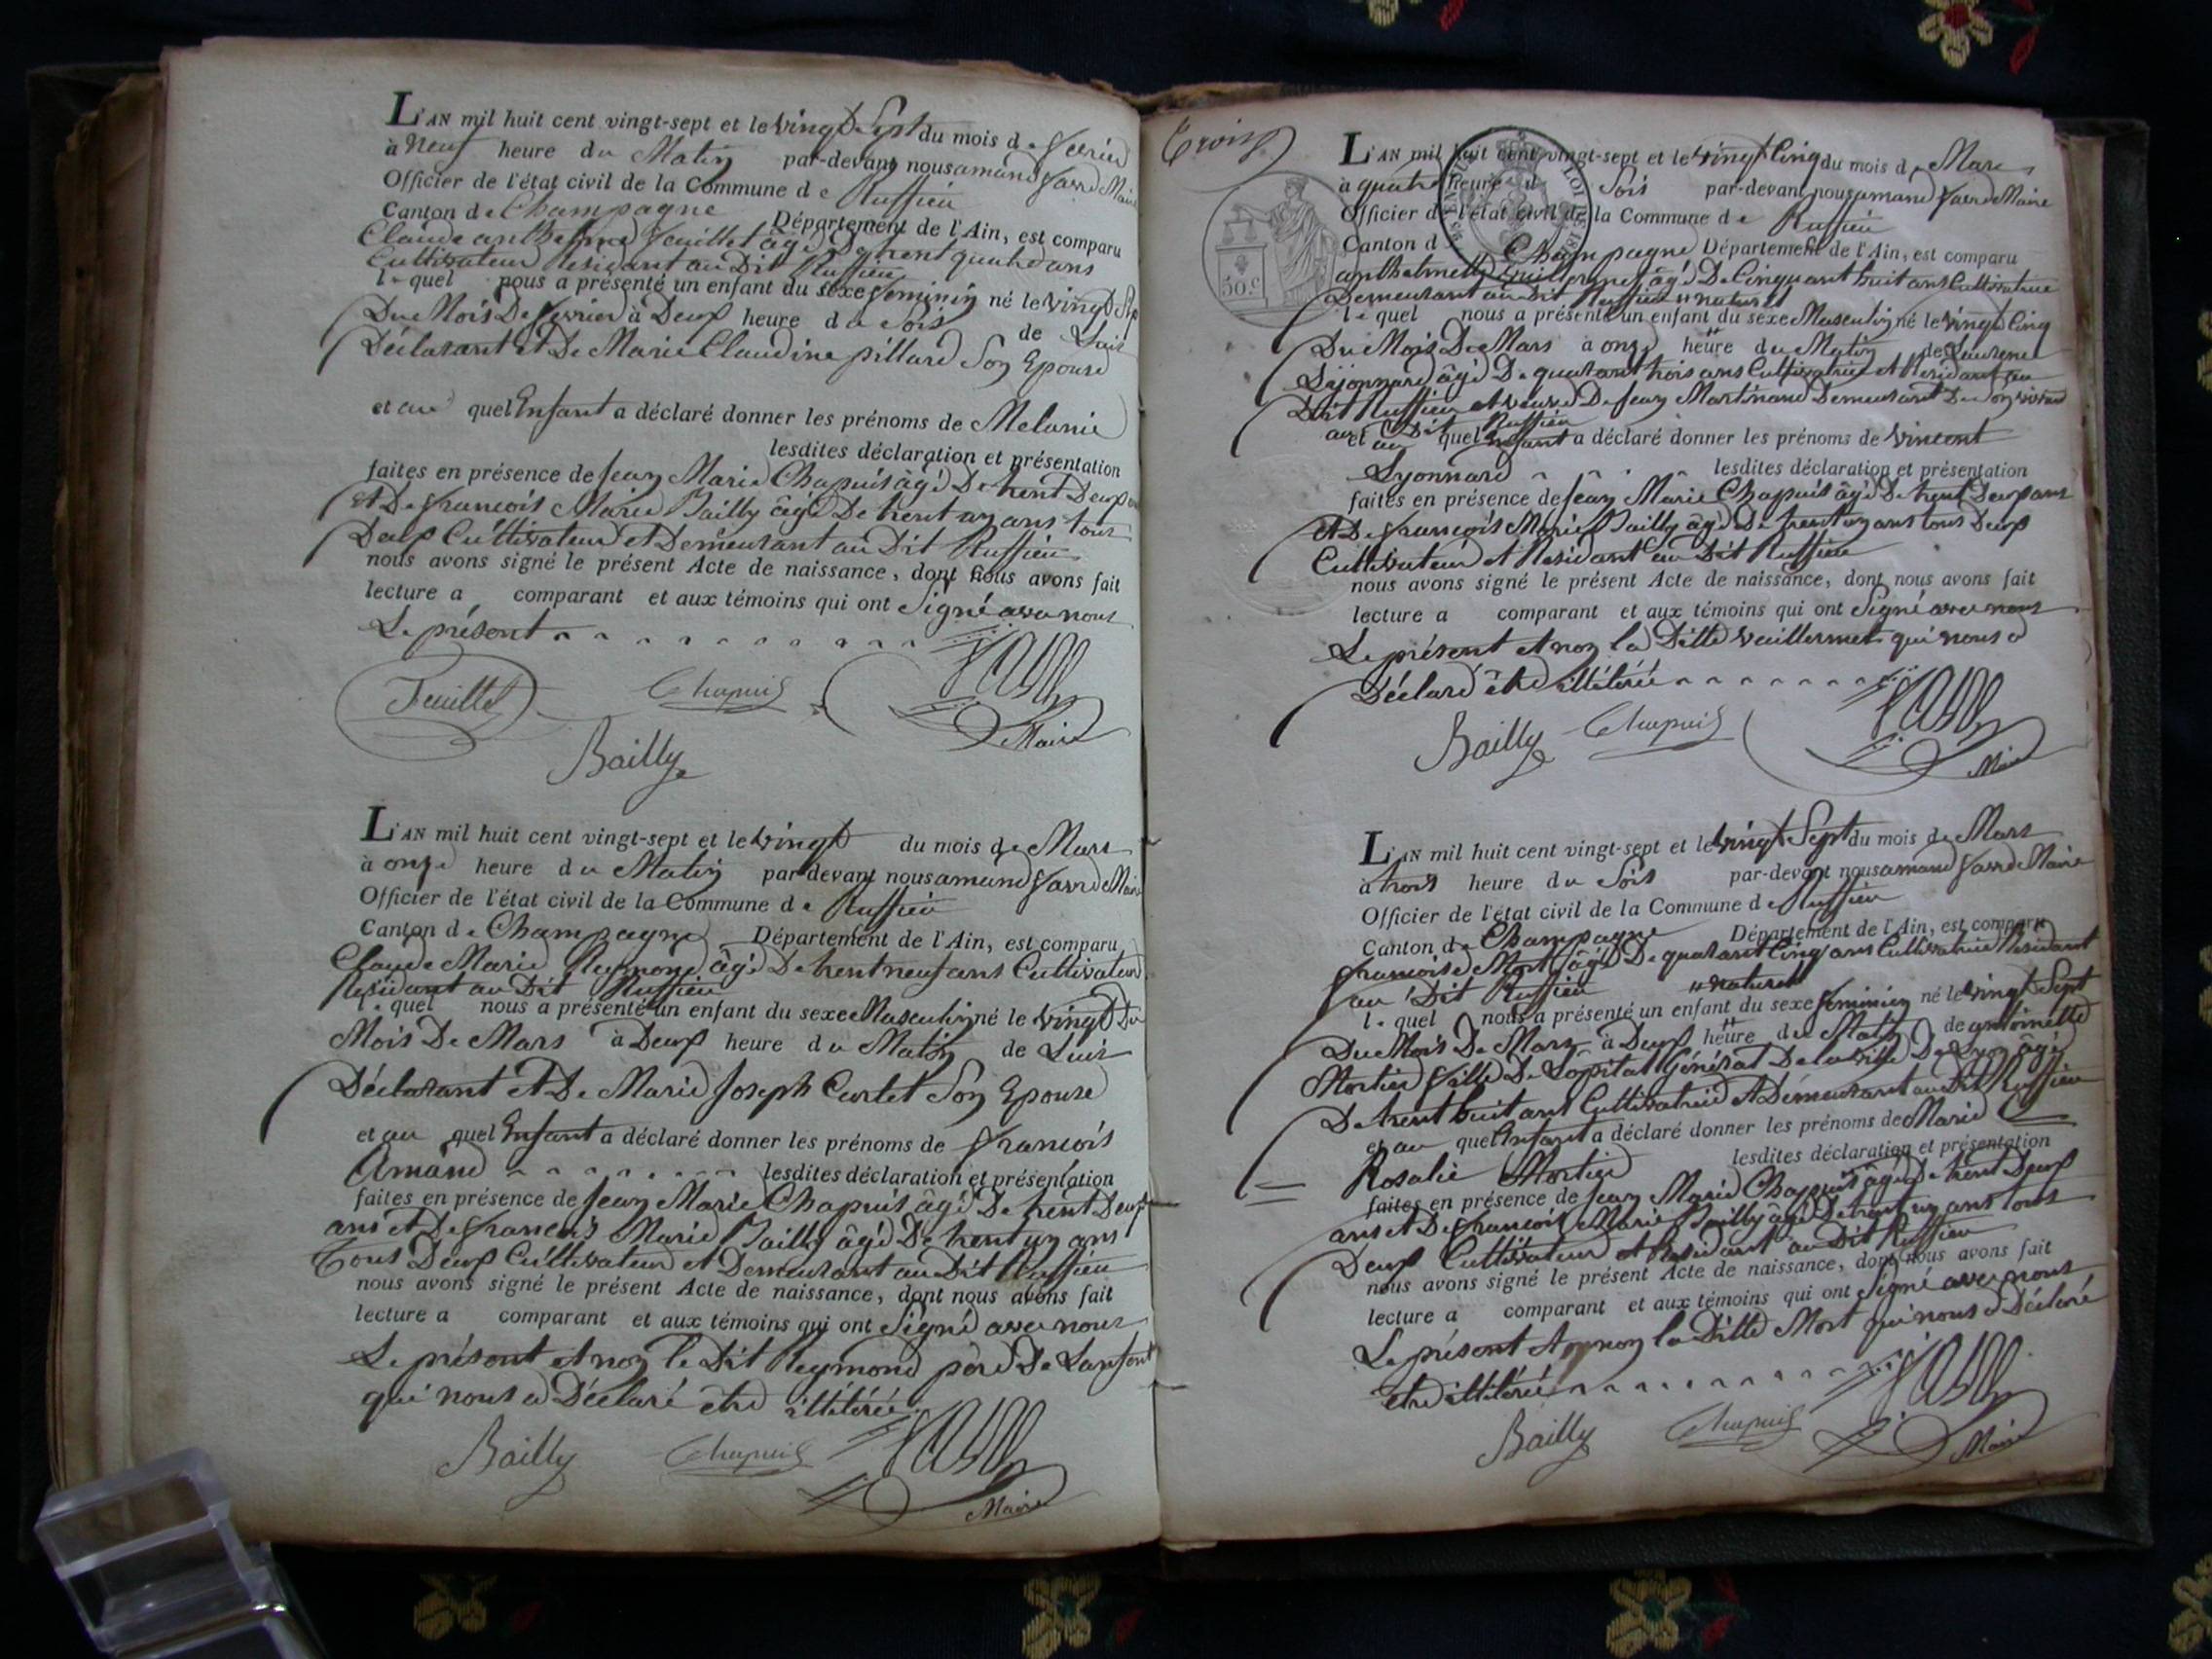 L'AN mil huit cent vingt-sept et le vingt Sept du mois de fevrier
à neuf heure du Matin par-devant nous amand favre Maire
Officier de l'état civil de la Commune de Ruffieu
Canton de Champagne Département de l'Ain, est comparu
Claude anthelme feuillet âgé De trent quatre ans
Cultivateur Residant au Dit Ruffieu
le quel nous a présenté un enfant du sexe feminin né le vingt Sept
Du Mois De fevrier à Deux heure du Soir de Luis
Déclarant et De Marie Claudine pillard Son Epouse
et au quel Enfant a déclaré donner les prénoms de Melanie
lesdites déclaration et présentation
faites en présence de Jean Marie Chapuis âgé De trent Deux ans
Et De francois Marie Bailly âgé De trent un ans tous
Deux Cultivateur et Demeurant au Dit Ruffieu
nous avons signé le présent Acte de naissance, dont nous avons fait
lecture a comparant et aux témoins qui ont Signé avec nous
Le présent
Feuillet Chapuis
Bailly Maire
L'AN mil huit cent vingt-sept et le vingt du mois de Mars
à onze heure du Matin par-devant nous amand favre Maire
Officier de l'état civil de la Commune de Ruffieu
Canton de Champagne Département de l'Ain, est comparu
Claude Marie Reymond âgé De trent neuf ans Cultivateur
Residant au Dit Ruffieu
le quel nous a présenté un enfant du sexe Masculin né le vingt Du
Mois De Mars à Deux heure du Matin de Luis
Déclarant et De Marie Joseph Curlet Son Epouse
et au quel Enfant a déclaré donner les prénoms de francois
Amand lesdites déclaration et présentation
faites en présence de Jean Marie Chapuis âgé De trent Deux
ans et De francois Marie Bailly âgé De trent un ans
Tous Deux Cultivateur et Demeurant au Dit Ruffieu
nous avons signé le présent Acte de naissance, dont nous avons fait
lecture a comparant et aux témoins qui ont Signé avec nous
Le présent et non le Dit Reymond père De Lanfent
qui nous a Déclaré etre illiteré
Bailly Chapuis
Maire
Trois
L'AN mil huit cent vingt-sept et le vingt Cinq du mois de Mars
à quatre heure du Soir par-devant nous amand favre Maire
Officier de l'état civil de la Commune de Ruffieu
Canton de Champagne Département de l'Ain, est comparu
50.c
anthelmette âgé De Cinquant huit ans Cultivatrice
Demeurant au Dit Ruffieu " naturel
le quel nous a présenté un enfant du sexe Masculin né le vingt Cinq
Du Mois De Mars à onze heure du Matin de Laurene
Lyonnard âgé De quarant trois ans Cultivatrice et Residant au
Dit Ruffieu et veuve De Jean Martinand Demeurant De Son vivant
au Dit Ruffieu
et au quel Enfant a déclaré donner les prénoms de vincent
Lyonnard lesdites déclaration et présentation
faites en présence de Jean Marie Chapuis âgé De trent Deux ans
et De francois Marie Bailly âgé De trent un ans tous Deux
Cultivateur et Residant au Dit Ruffieu
nous avons signé le présent Acte de naissance, dont nous avons fait
lecture a comparant et aux témoins qui ont Signé avec nous
Le présent et non la Ditte vuillermet qui nous a
Déclaré être illiterée
Bailly Chapuis
Maire
L'AN mil huit cent vingt-sept et le vingt Sept du mois de Mars
à trois heure du Soir par-devant nous amand favre Maire
Officier de l'état civil de la Commune de Ruffieu
Canton de Champagne Département de l'Ain, est comparu
francoise Mort âgé De quarant Cinq ans Cultivatrice Residant
au Dit Ruffieu " naturel
le quel nous a présenté un enfant du sexe feminin né le vingt Sept
Du Mois De Mars à Deux heure du Matin de antoinette
Mortier fille De Lopital Général De la ville De Lyon âgé
De trent huit ans Cultivatrice et Demeurant au Dit Ruffieu
et au quel Enfant a déclaré donner les prénoms de Marie
Rosalie Mortier lesdites déclaration et présentation
faites en présence de Jean Marie Chapuis âgé De trent Deux
ans et De francois Marie Bailly âgé De trent un ans tous
Deux Cultivateur et Residant au Dit Ruffieu
nous avons signé le présent Acte de naissance, dont nous avons fait
lecture a comparant et aux témoins qui ont Signé avec nous
Le présent et non la Ditte Mort qui nous a Déclaré
etre illiterée
Bailly Chapuis
Maire